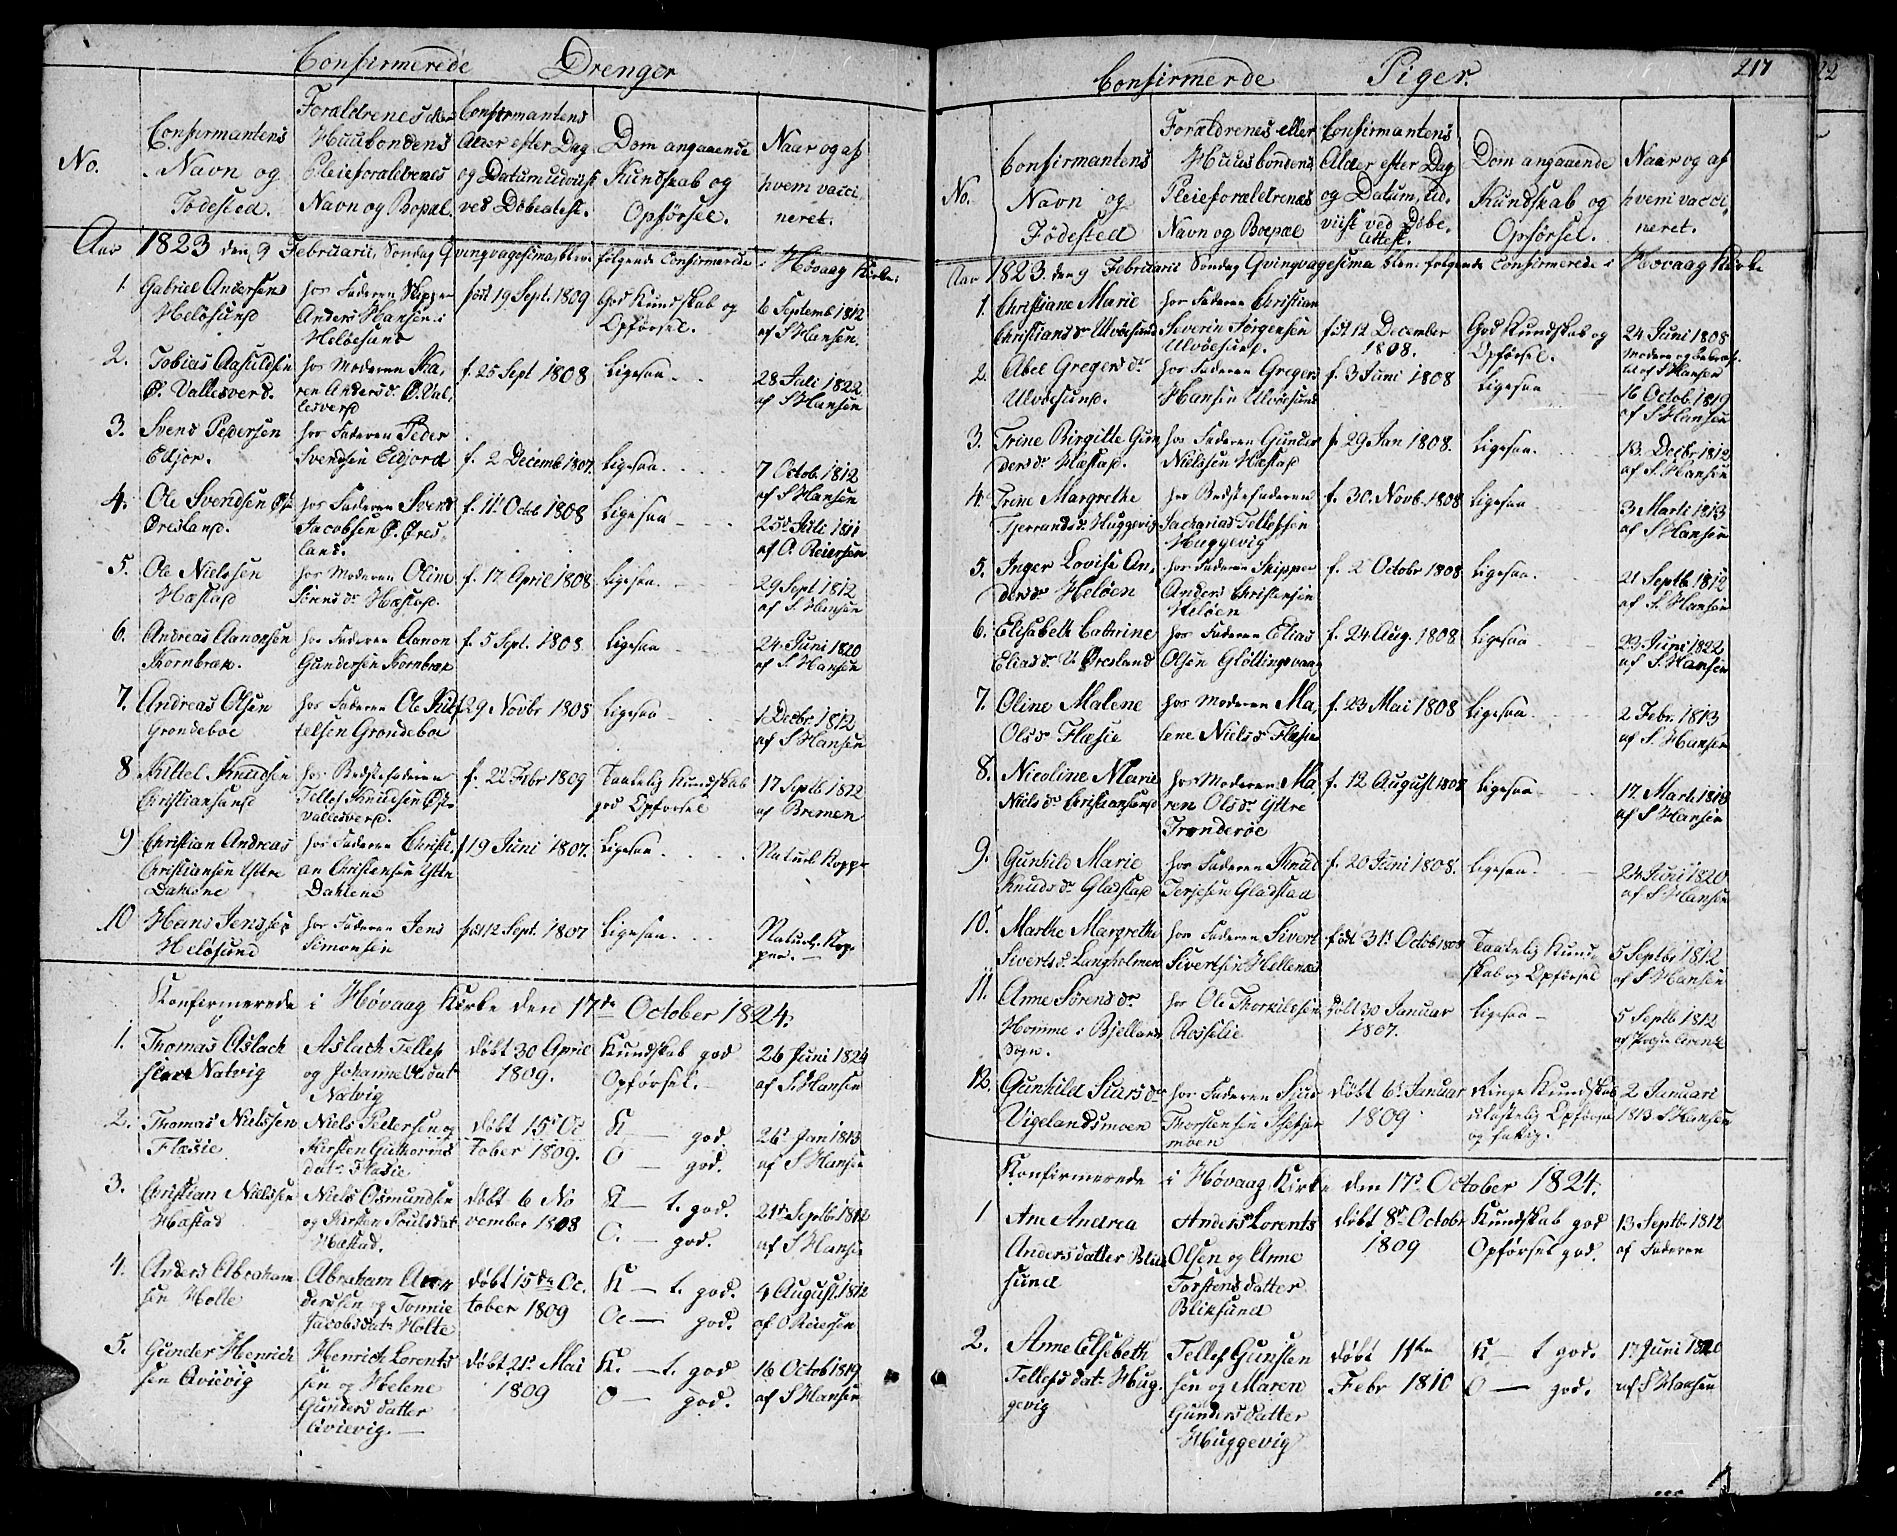 Confirmerede Drenger
No.
Confirmantens
Navn og
Fødested.
Forældrenes eller
Huusbondens
Pleieforældrenes
Navn og Bopæl.
Confirmantens
Alder efter Dag
og Datum udviist
ved Døbeatest.
Dom angaaende
Kundskab og
Opførsel.
Naar og af
hvem vacci
neret.
Aar 1823 den 9 Februarii, Søndag Qvinqvagesima, bleve følgende Confirmerede i Høvaag Kirke:
1. Gabriel Andersen
Heløsund
hos Faderen Skipper
Anders Hansen i
Heløesund
født 19 Sept. 1809
God Kundskab og
Opførsel.
6 Septemb 1812
af S Hansen.
2. Tobias Aasuldsen
Ø. Vallesverd.
hos Moderen Ka,
ren Andersd. Ø. Val,
lesverd
f. 25 Sept 1808
Ligesaa.
28 Juli 1822
af S Hansen
3. Svend Pedersen
Edjor.
hos Faderen Peder
Svendsen Edjord
f. 2 Decemb 1807.
Ligesaa.
7 Octob. 1812
af S Hansen
4. Ole Svendsen Ø.
Øresland.
hos Faderen Svend
Jacobsen Ø. Øres,
land.
f. 11 Octob 1808
Ligesaa
25de Juli 1811
af O. Reiersen
5. Ole Nielssen
Hæstad
hos Moderen Oline
Sørensdr Hæstad.
f. 17 April 1808
Ligesaa.
29 Sept 1812
af S. Hansen
6. Andreas Aanonsen
Kornbræk.
hos Faderen Aanon
Gundersen Kornbræk
f. 5 Sept. 1808
Ligesaa
24 Juni 1820
af S Hansen
7. Andreas Olsen
Grøndeboe
hos Faderen Ole Kit
telsen Grøndeboe
f 29 Novbr 1808
Ligesaa
1 Decbr. 1812
af S Hansen
8 Kittel Knudsen
Christiansand
hos Bedstefaderen
Tellef Knudsen Østr
Vallesverd.
f. 22 Febr 1809
Taalelig Kundskab
god Opførsel
17 Septb 1812
af Bremen
9 Christian Andreas
Christiansen Yttre
Dahlene
hos Faderen Christi,
an Christensen Yttre
Dahlene
f 19 Juni 1807.
Ligesaa
Naturl. Kopper
10 Hans Jenssen
Heløsund
hos Faderen Jens
Simonsen
født 12 Sept. 1807
Ligesaa.
Naturl. Kop
per.
Konfirmerede i Høvaag Kirke den 17de October 1824.
1. Thomas Aslach
sen Natvig
Aslach Tellefs
og Johanne dat
Natvig
døbt 30 April
1809.
Kundskab god
Opførsel.
26 Juni 1824
af S. Hansen
2. Thomas Nielssen
Flæsie
Niels Pedersen og
Kirsten Guthorms
datr Flæsie
døbt 15de Oc
tober 1809.
K — god.
O — god.
26de Jan 1813
af S Hansen
3. Christian Nielssen
Hæstad
Niels Osmundsen
og Kirsten Poulsdat
Hæstad.
døbt 6 No
vember 1808
K — t. god.
O. — god.
21de Septbr 1812
af S Hansen
4. Anders Abraham
sen Holte
Abraham An
derssen og Tonnie
Jacobsdatr Holte
døbt 15de Oc.
tober 1809
K — t. god.
O — god.
4 August 1812
af O Reiersen
5. Gunder Henrich
sen Qvievig
Henrich Lorents
sen og Helene
Gundersdatter
Qvievig.
døbt 21de Mai
1809
K. — t. god
O — god.
16 Octob 1819
af S Hansen
217
Confirmerde Piger.
No.
Confirmantens
Navn og
Fødested
Forældrenes eller
Huusbondens
Pleieforældrenes
Navn og Boepæl
Confirmantens
Alder efter Dag
og Datum, ud.
viist ved Døbe.
attest.
Dom angaaende
Kundskab og
Opførsel.
Naar og af
hvem vacci,
neret.
Aar 1823. den 9 Februarii Søndag Qvinqvagesima bleve følgende Confirmerede i Høvaag Kirke
1. Christiane Marie
Christiansdr Ulvøesund
hos Faderen Christian
Severin Jørgensen
Ulvøesund.
født 12 December
1808.
God Kundskab og
Opførsel.
24 Juni 1808
2. Abel Gregersdr
Ulvøesund.
hos Faderen Gregers
Hansen Ulvøesund
f. 3 Juni 1808
Ligesaa
16 Octob. 1819
af S Hansen
3. Trine Birgitte Gun
dersdr Hæstad.
hos Faderen Gunder
Nielssen Hæstad
f. 29 Jan 1808.
Ligesaa.
13. Decbr 1812
af S. Hansen
4. Trine Margrethe
Tjerrandsdr Huggevig
hos Bedstefaderen
Sacharias Tellefsen
Huggevig
f. 30. Novb. 1808
Ligesaa.
3 Marti 1813
af S. Hansen
5. Inger Lovise An,
dersdr Heløen
hos Faderen Skipper
Anders Christensen
Heløen
f. 2 Octobr 1808
Ligesaa.
21 Septb. 1812
af S. Hansen
6. Elisabeth Catrine
Eliasdr U. Øresland
hos Faderen Elias
Olsen Glöttingsvaag
f. 24 Aug. 1808
Ligesaa
23 Juni 1822
af S. Hansen
7. Oline Malene
Olsdr Flæsie
hos Moderen Ma,
lene Nielsdr Flæsie
f. 23 Mai 1808
Ligesaa.
2 Febr. 1813
af S. Hansen
8. Nicoline Marie
Nielsdr Christiansand
hos Moderen Ma
ren Olsdr Yttre
Trønderøe
f. 12 August 1808
Ligesaa
17 Marti 1818
af S Hansen
9. Gunhild Marie
Knudsdr Gladstad
hos Faderen Knud
Terjesen Gladstad
f. 20 Juni 1808.
Ligesaa.
24 Juni 1820
af S. Hansen
10. Marthe Margrethe
Sivertsdr Langholmen
hos Faderen Sivert
Sivertsen Hellenæs
født 31 Octob 1808
Taalelig Kund
skab og Opførsel
5 Septbr 1812
af S Hansen
11. Anne Sørensdr
Homme i Bjelland
Sogn.
hos Ole Thorkildsen
Rosselie
døbt 30 Januar
1807.
Ligesaa
5 Septb 1812
12. Gunhild Siursdr
Vigelandsmoen
hos Faderen Siur
Thorstensen
moen
døbt 6te Januar
1809
Ringe Kundskab
skikkelig Opførsel
og fattig.
2 Januari
1813 S Hansen
Konfirmerede i Høvaag Kirke den 17de October 1824.
1 Ane Andrea
Andersdatter Blik
sund
Anders Lorents
Olsen og Anne
Torstensdatter
Bliksund
døbt 8de Octobr
1809
Kundskab god
Opførsel god.
13 Septbr 1812
af Faderen
2. Anne Elsebeth
Tellefsdatr Hug.
gevig
Tellef Gunsten
sen og Maren
Gundersdatter
Huggevig
døbt 11te
Febr 1810
K — t god.
O — god.
17 Juni 1820
af S Hansen